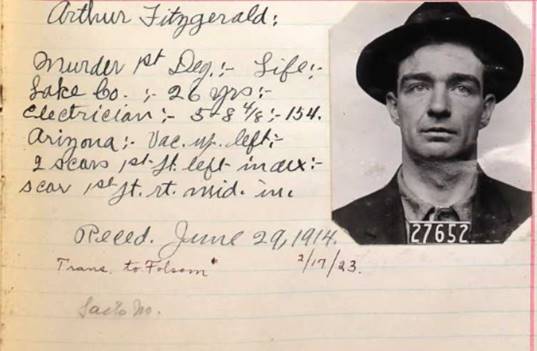 Arthur Fitzgerald:
Murder 1st Deg:- Life:-
Lake Co. :- 26 yrs:-
Electrician:- 5-8 4/8:- 154.
Arizona:- Vac. up. left:-
2 scars 1st jt. left index:-
scar 1st jt. rt. mid. in.
27652
Reced. June 29, 1914.
Trans. to Folsom 2/17/23.